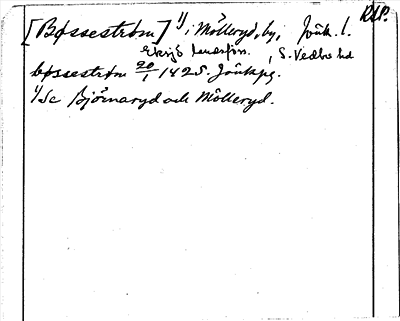 RAP.
[Bøsseström] 1) i Mölleryd, by, Jönk. l.
Eksjö landsförs., S. Vedbo hd
bøsseström 20/1 1425. Jönkpg.
1) Sc Björnaryd och Mölleryd.